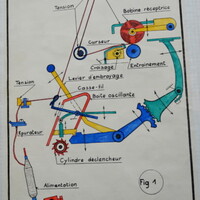 Tension
Bobine réceptrice
Curseur
Croisage
Entraînement
Levier d'embrayage
Casse-fil
Tension
Boîte oscillante
Epurateur
Cylindre déclencheur
Alimentation
Fig 1